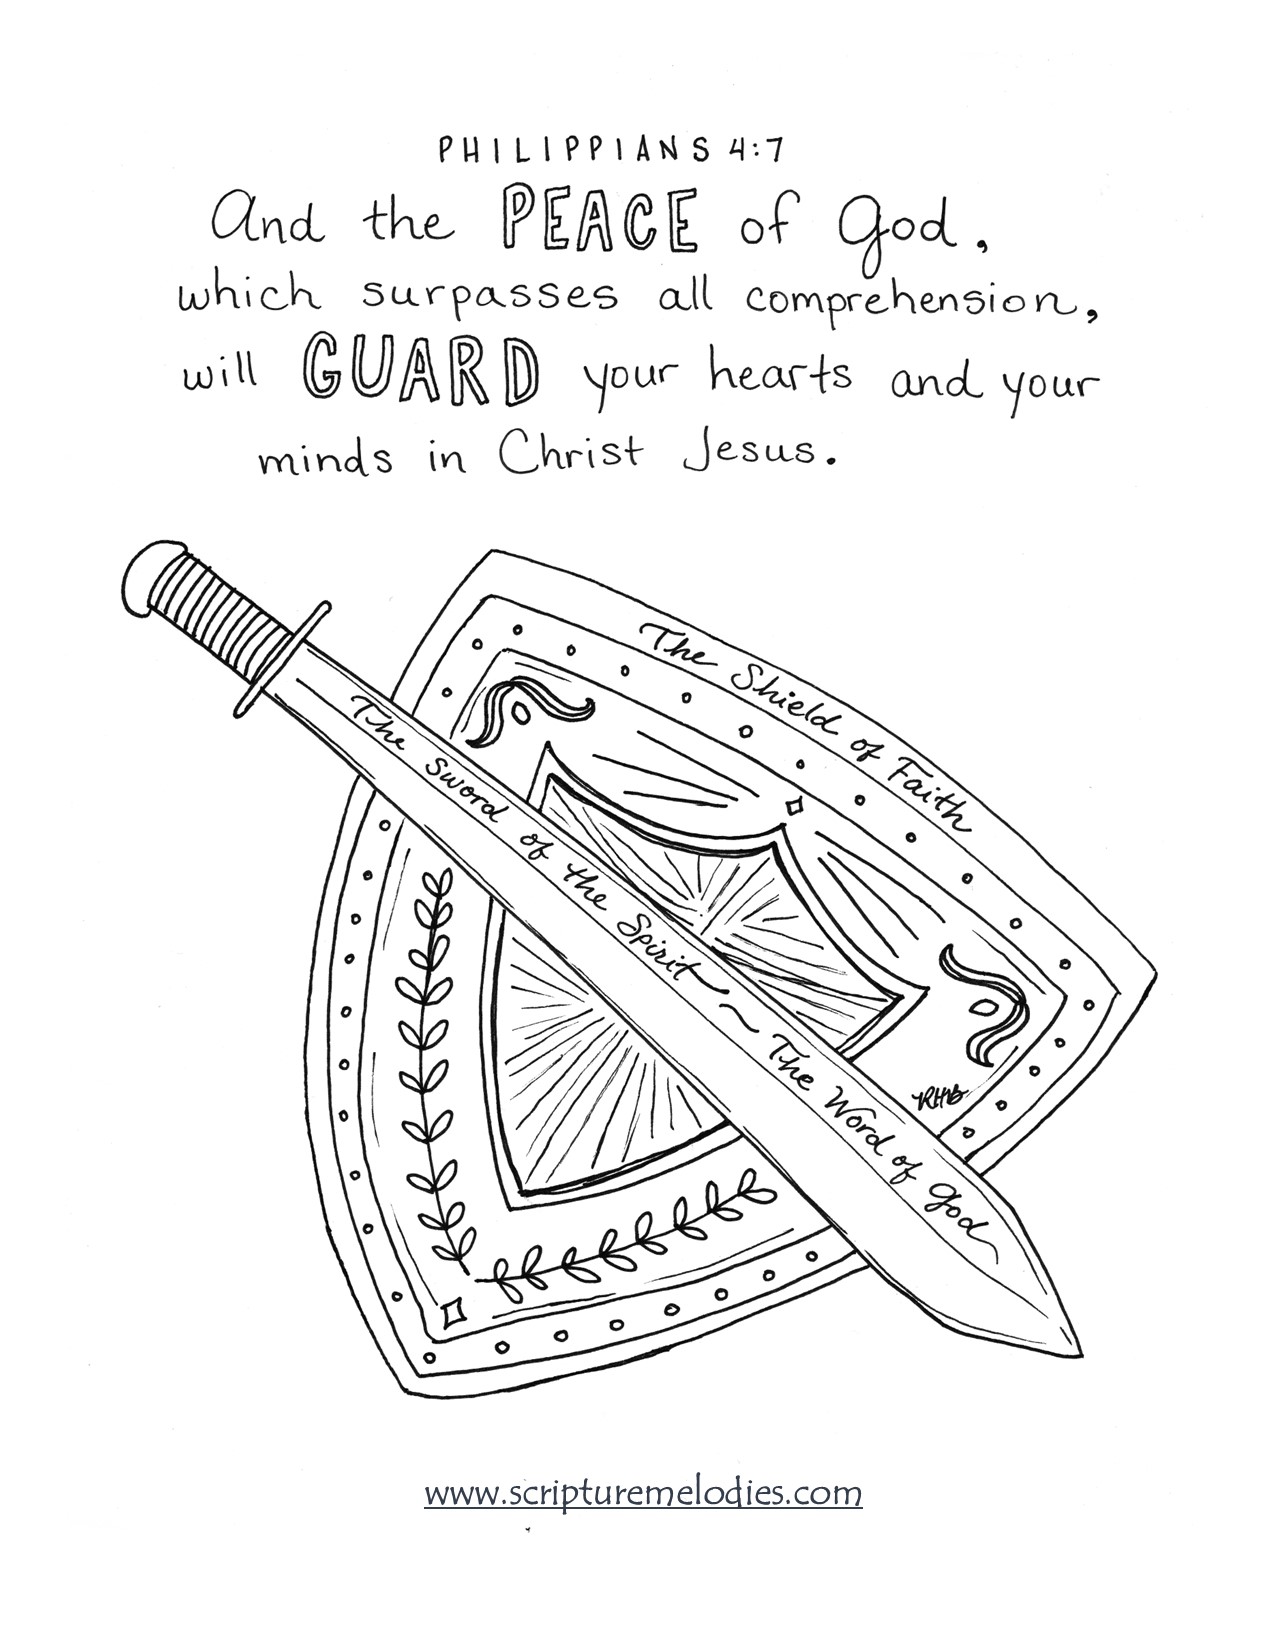 PHILIPPIANS 4:7
And the PEACE of God,
which surpasses all comprehension,
will GUARD your hearts and your
minds in Christ Jesus.
The Shield of Faith
The Sword of the Spirit ~ The Word of God
RHB
www.scripturemelodies.com